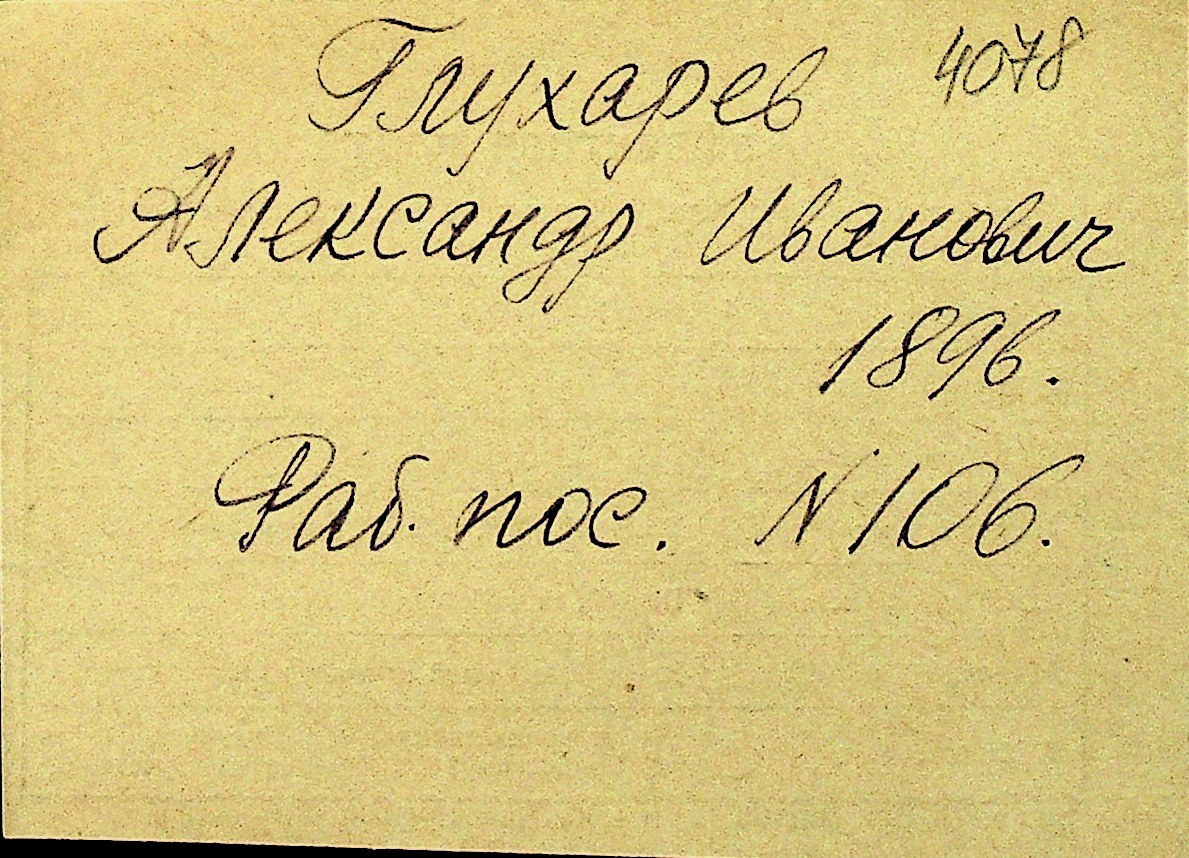 Глухарев 4078
Александр Иванович
1896.
Раб. пос. N 106.